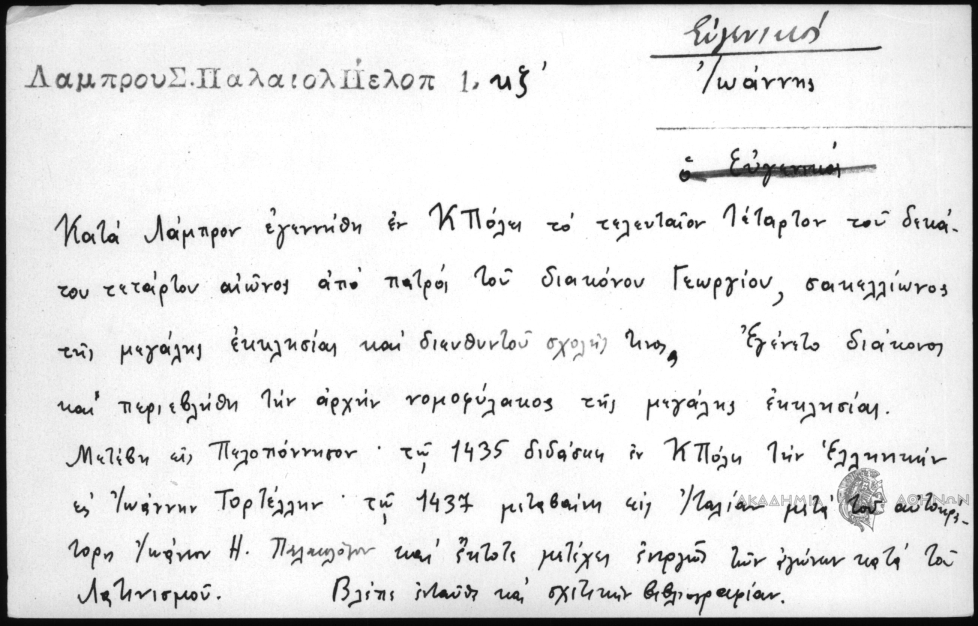 Εὐγενικός
Ἰωάννης
ΛαμπρουΣ.ΠαλαιολΠελοπ 1. κζ'
ὁ Εὐγενικός
Κατά Λάμπρον ἐγεννήθη ἐν ΚΠόλει τό τελευταῖον τέταρτον τοῦ δεκά-
του τετάρτου αἰῶνος ἀπό πατρός τοῦ διακόνου Γεωργίου, σακελλίωνος
τῆς μεγάλης ἐκκλησίας καί διευθυντοῦ σχολῆς τινος, Ἐγένετο διάκονος
καί περιεβλήθη τήν ἀρχήν νομοφύλακος τῆς μεγάλης ἐκκλησίας.
Μετέβη εἰς Πελοπόννησον · τῷ 1435 διδάσκει ἐν ΚΠόλει τήν Ἑλληνικήν
εἰς Ἰωάννην Τορτέλλην · τῷ 1437 μεταβαίνει εἰς Ἰταλίαν μετά τοῦ αὐτοκρά-
τορος Ἰωάννου Η. Παλαιολόγου καί ἔκτοτε μετέχει ἐνεργῶς τῶν ἀγώνων κατά τοῦ
Λατινισμοῦ. Βλέπε ἐνταῦθα καί σχετικήν βιβλιογραφίαν.
ΑΚΑΔΗΜΙΑ ΑΘΗΝΩΝ